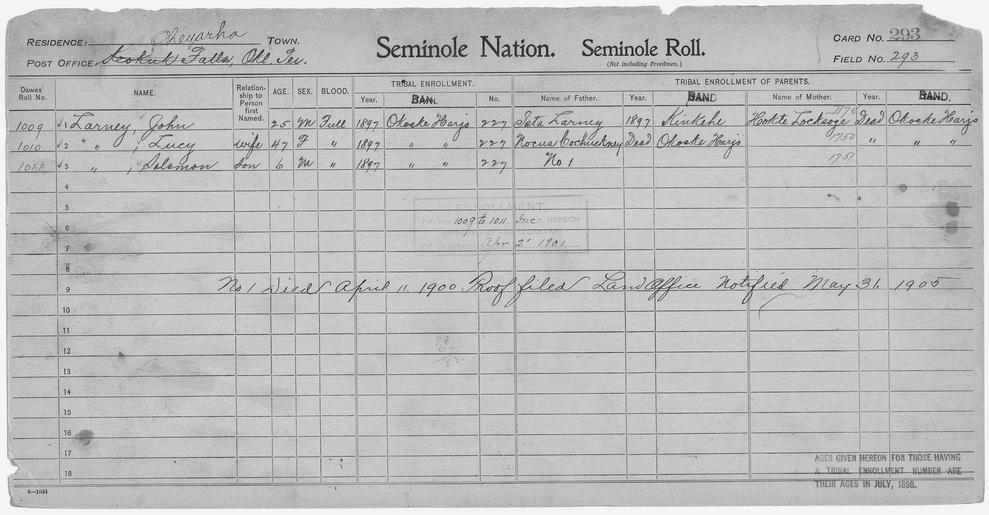 RESIDENCE: Cheyarha TOWN.
POST OFFICE: Keokuk Falls, Okl. Ter.
Seminole Nation. Seminole Roll.
(Not including Freedmen.)
CARD NO. 293
FIELD NO. 293
Dawes' Roll No. NAME. Relationship to Person first Named. AGE. SEX. BLOOD. TRIBAL ENROLLMENT. TRIBAL ENROLLMENT OF PARENTS.
Year. BAND No. Name of Father. Year. BAND Name of Mother. Year. BAND.
1776
1009 √ 1 Larney, John 25 M Full 1897 Okoske Harjo 227 Tata Larney 1897 Kinkehe Hokte Locksoge Dead Okoske Harjo
1010 √ 2 " , Lucy wife 47 F " 1897 " " 227 Nocus Cochuckney Dead Okoske Harjo 1750 " " "
1011 √ 3 " , Solomon son 6 M " 1897 " " 227 No 1 1751
4
5
ENROLLMENT
1009 to 1011 Inc. HEREON
6
OF INTERIOR Apr 2' 1901
7
8
9 No 1 Died April 11, 1900 Proof filed Land Office Notified May 31, 1905
10
11
12
13
14
15
16
17
18
AGES GIVEN HEREON FOR THOSE HAVING
A TRIBAL ENROLLMENT NUMBER ARE
THEIR AGES IN JULY, 1898.
6—1044